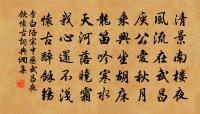 清景南樓夜
風流在武昌
庾公愛秋月
乘興坐胡床
龍笛吟寒水
天河落曉霜
我心還不淺
懷古醉餘觴
李白陪宋中丞武昌夜
飲懷古詞典網集